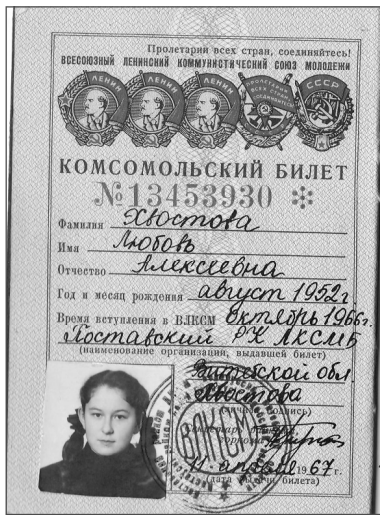 Пролетарии всех стран, соединяйтесь!
ВСЕСОЮЗНЫЙ ЛЕНИНСКИЙ КОММУНИСТИЧЕСКИЙ СОЮЗ МОЛОДЕЖИ
ЛЕНИН ЛЕНИН ЛЕНИН ПРОЛЕТАРИИ ВСЕХ СТРАН СОЕДИНЯЙТЕСЬ СССР
КОМСОМОЛЬСКИЙ БИЛЕТ
№13453930
Фамилия Хвостова
Имя Любовь
Отчество Алексеевна
Год и месяц рождения август 1952г.
Время вступления в ВЛКСМ Октябрь 1966г.
Поставский РК ЛКСМБ
(наименование организации, выдавшей билет)
Витебской обл.
Хвостова
(личная подпись)
Секретарь
ВЛКСМ
11 апреля 1967 г.
(дата выдачи билета)